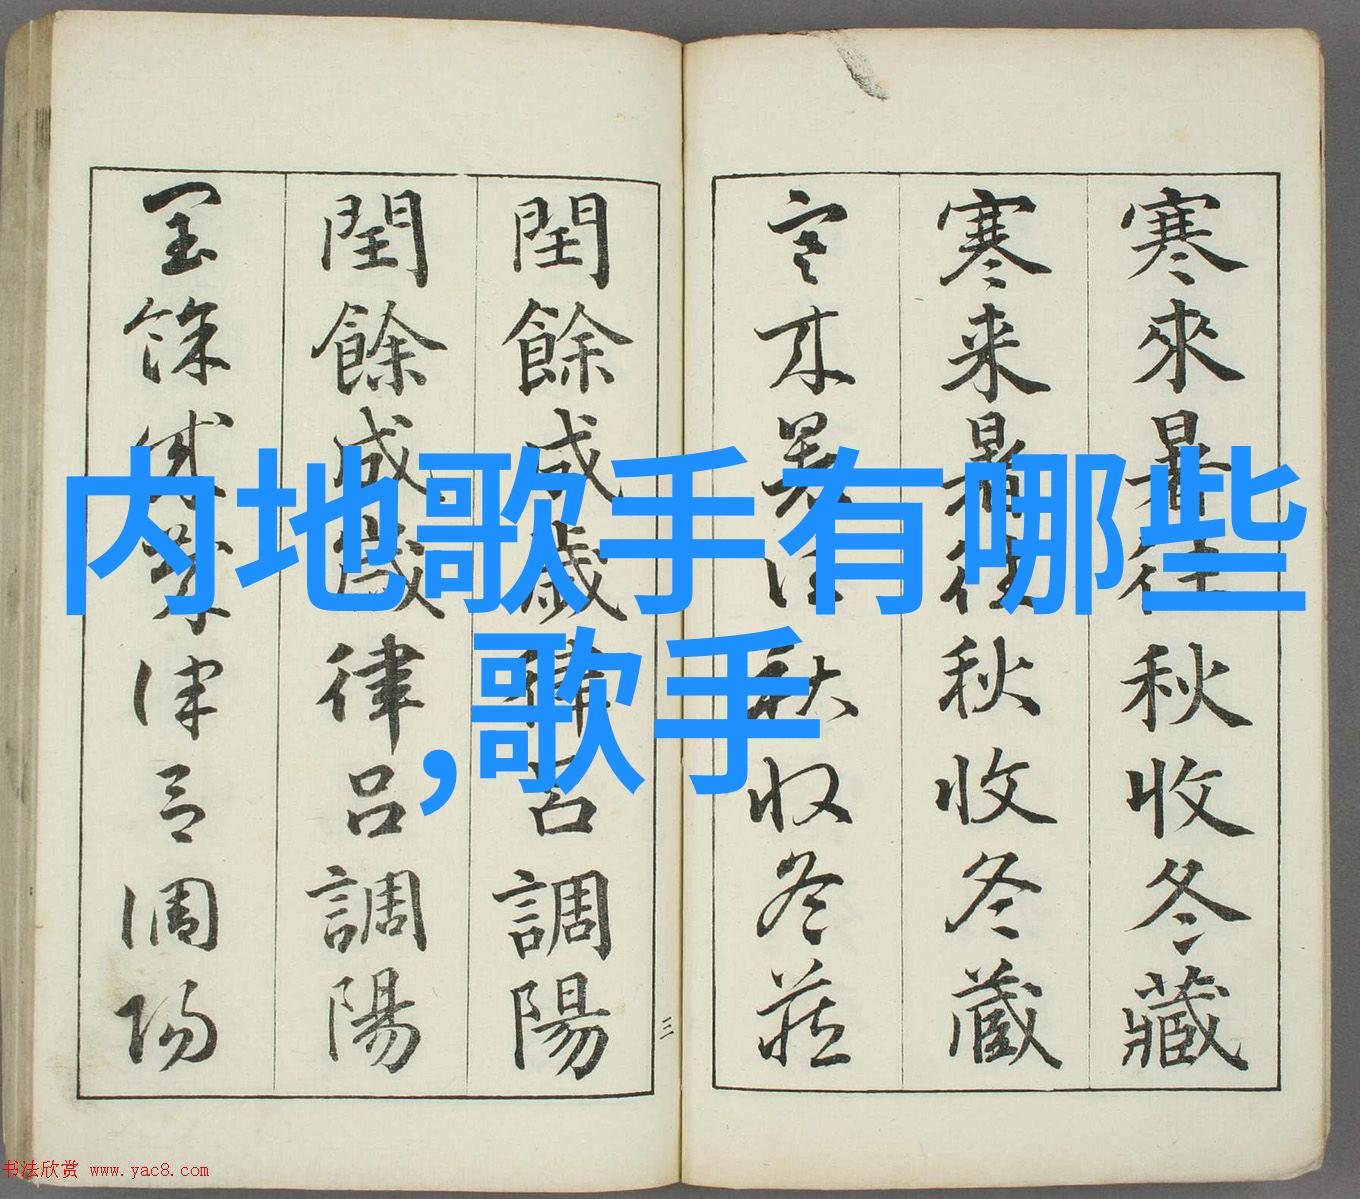 寒來暑往秋收冬藏
寒来暑往秋收冬蔵
寒来暑往秋收冬藏
閏餘成歲律吕調陽
閏餘成歳律呂調陽
閏餘成歲律吕調陽
三
内地歌手有哪些
,歌手
书法欣赏 www.yac8.com